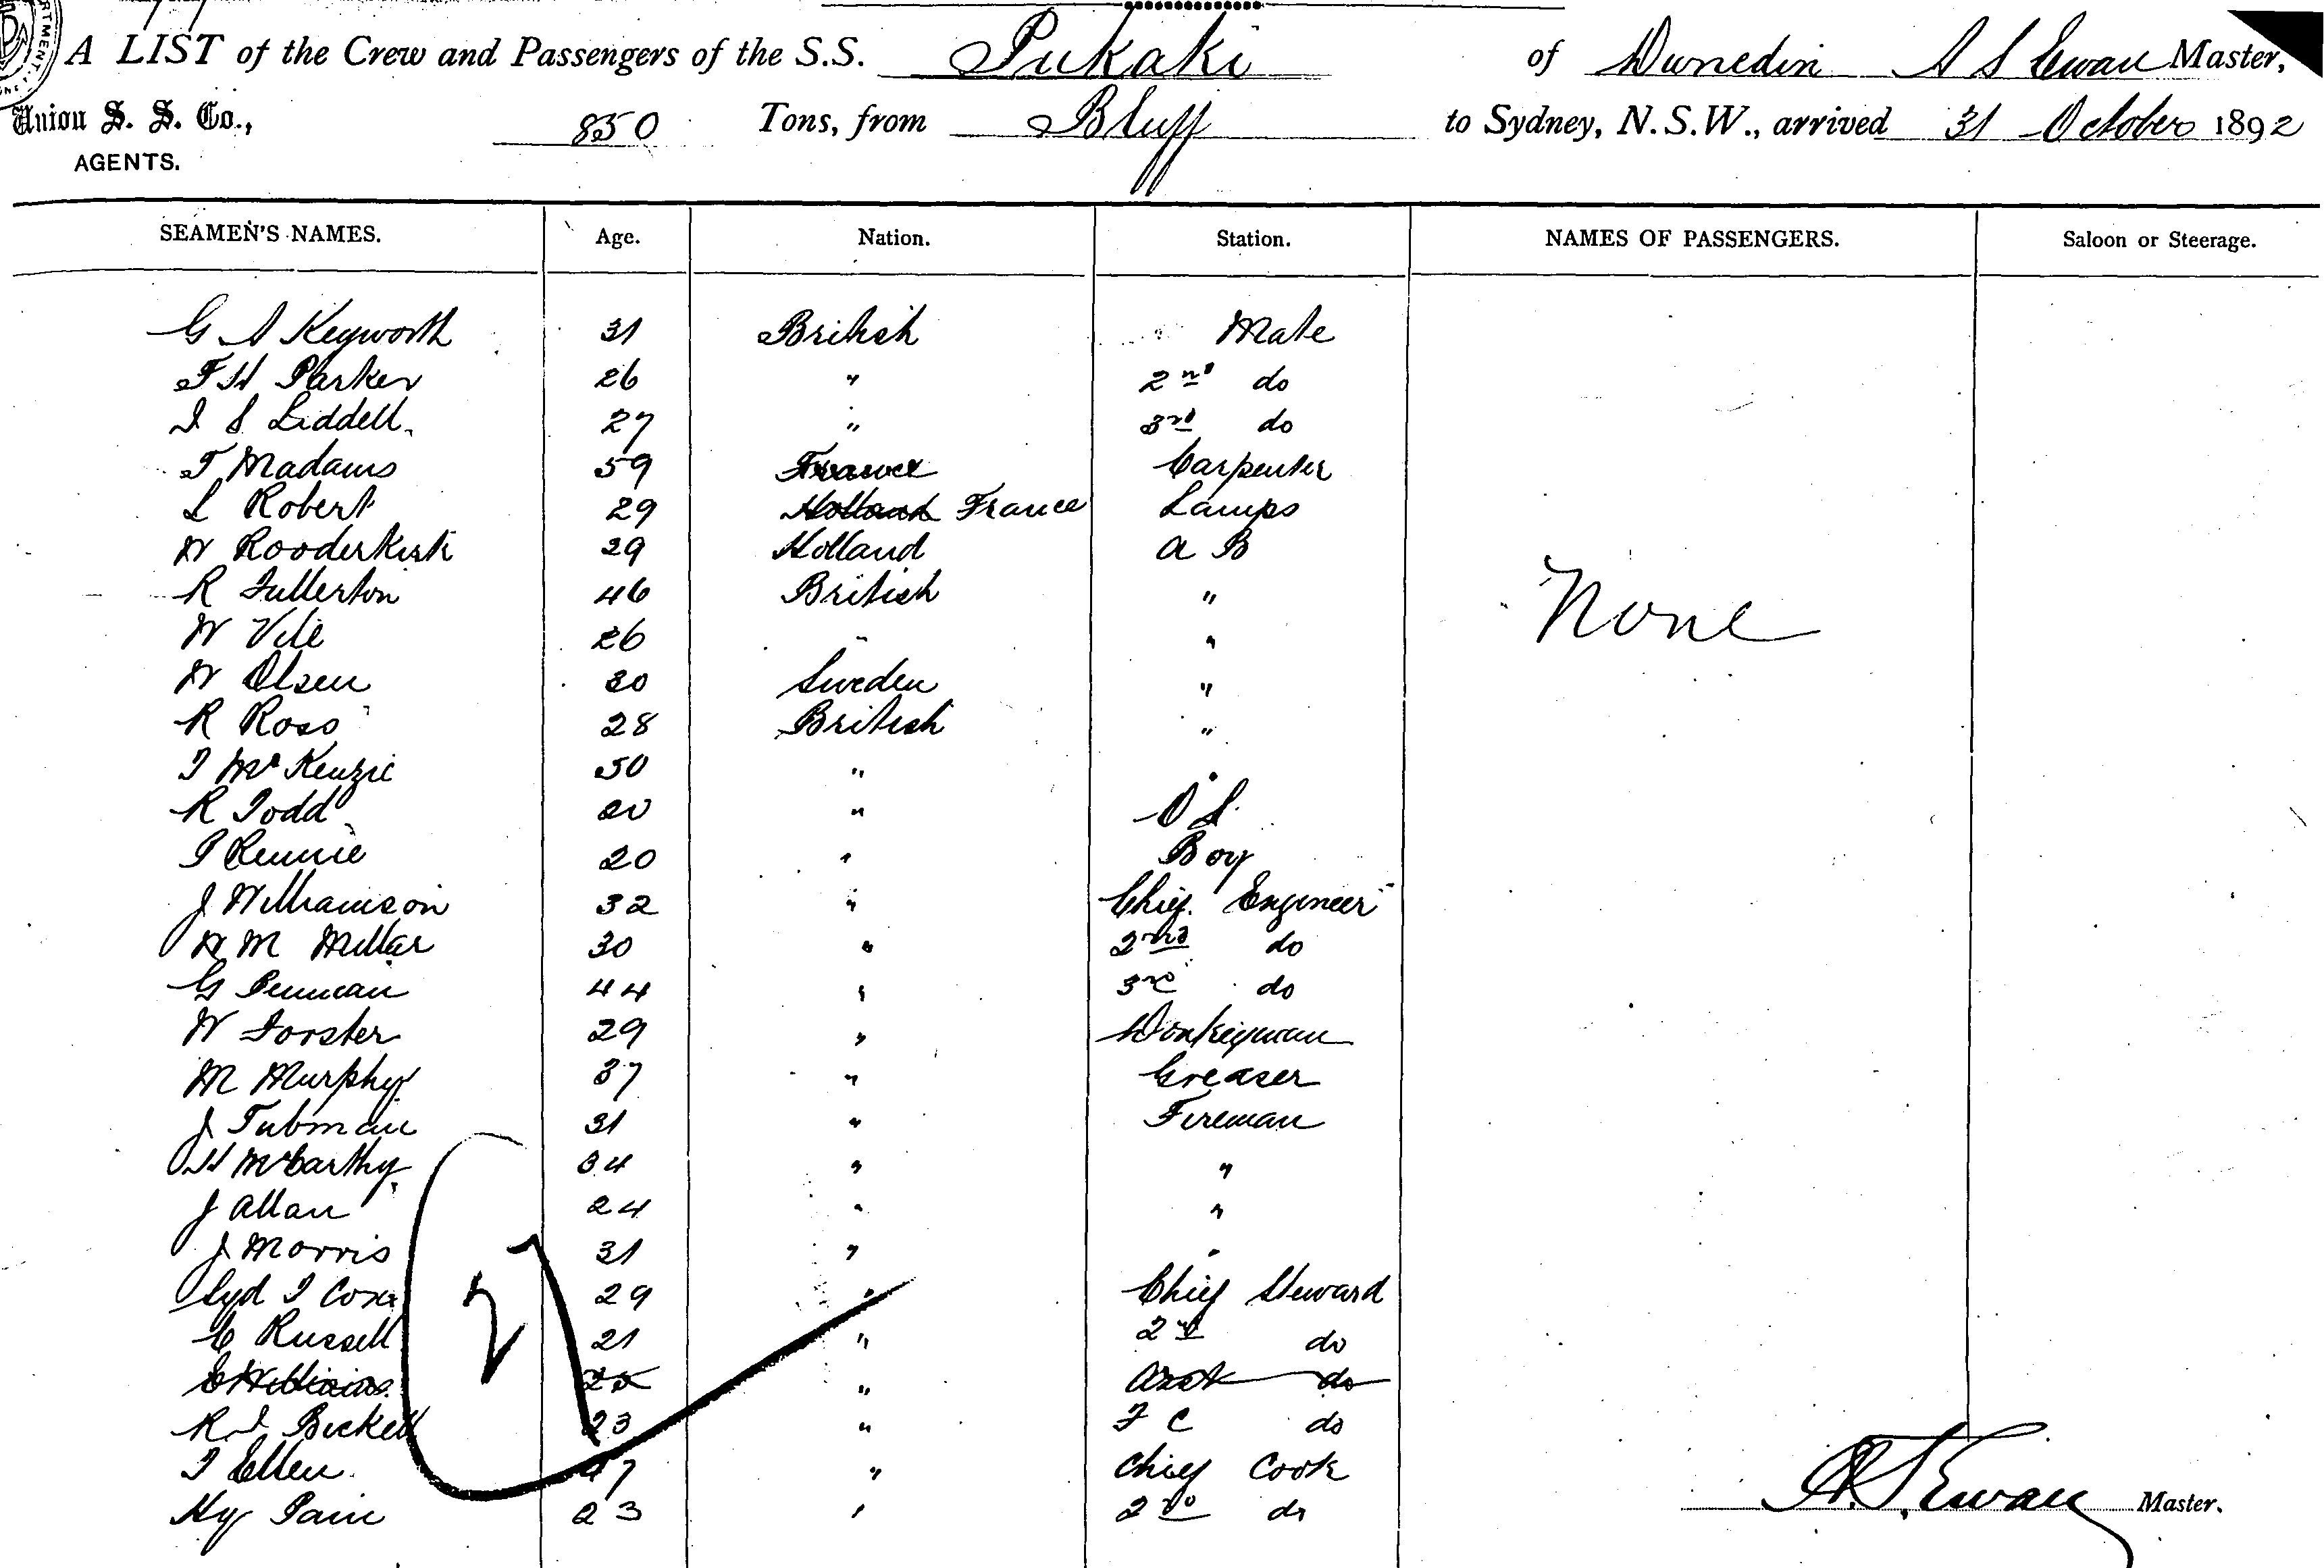 A LIST of the Crew and Passengers of the S.S. Pukaki of Dunedin A S Ewan Master,
Union S. S. Co., 850 Tons, from Bluff to Sydney, N.S.W., arrived 31 October 1892
AGENTS.
SEAMEN'S NAMES. Age. Nation. Station. NAMES OF PASSENGERS. Saloon or Steerage.
G A Keyworth 31 British Mate
F H Parker 26 " 2nd do
J S Liddell 27 " 3rd do
T Madams 59 France Carpenter
L Robert 29 Holland France Lamps
W Rooderkirk 29 Holland A B
R Fullerton 46 British "
None
W Vile 26 " "
W Olsen 30 Sweden "
R Ross 28 British "
J McKenzie 50 " "
R Todd 20 " O S
J Rennie 20 " Boy
J Williamson 32 " Chief Engineer
W M Millar 30 " 2nd do
G Penman 44 " 3rd do
W Forster 29 " Donkeyman
M Murphy 37 " Greaser
J Tubman 31 " Fireman
H McCarthy 34 " "
J Allan 24 " "
J Morris 31 " "
Syd J Cox 29 " Chief Steward
27
C Russell 21 " 2nd do
E Williams 25 " Asst do
R J Bickell 23 " F C do
J Ellen 47 " Chief Cook
Hy Pain 23 " 2nd do
A. S. Ewan Master.